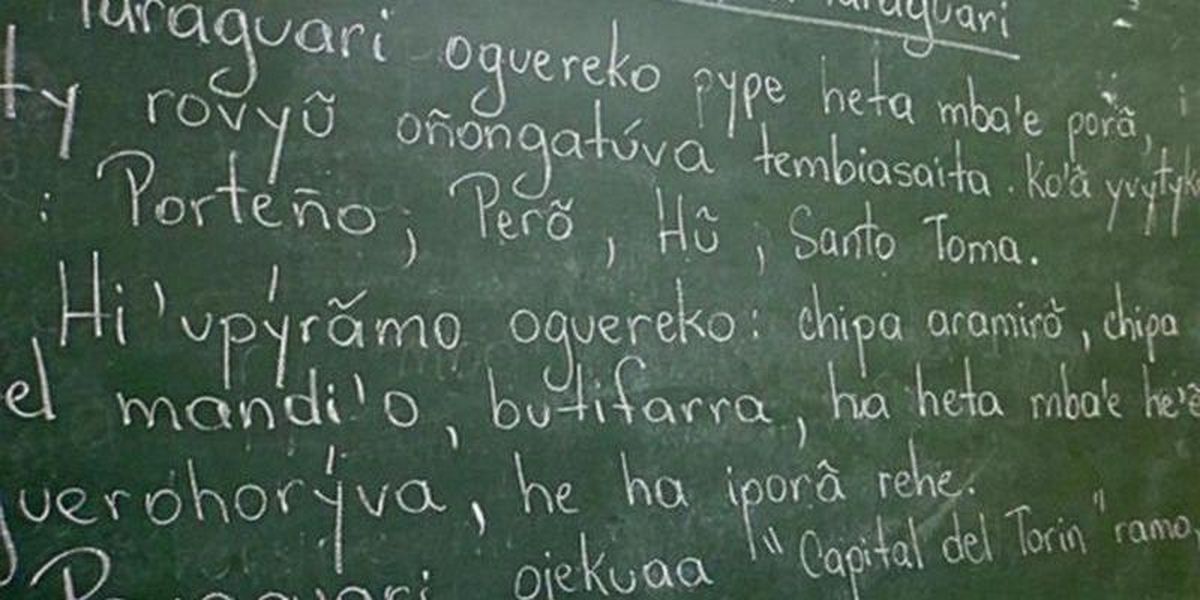 Paraguari
Paraguari oguereko pype heta mba'e porã,
ty rovyũ oñongatúva tembiasaita. Ko'ã
: Porteño, Perõ, Hũ, Santo Toma.
Hi'upýrãmo oguereko: chipa aramirõ, chipa
el mandi'o, butifarra, ha heta mba'e
guerohorýva, he ha iporã rehe.
Paraguari ojekuaa "Capital del Torin" ramo,